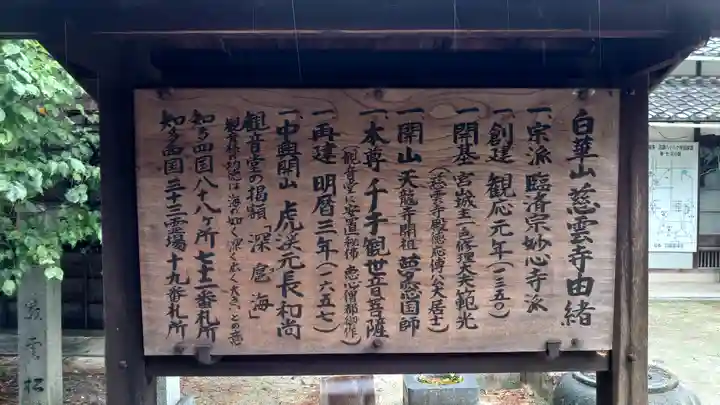 白華山 慈雲寺由緒
一、宗派 臨済宗妙心寺派
一、創建 観応元年（一三五〇）
一、開基 宮城主一色修理大夫範光
（慈雲寺殿
一、開山 天龍寺開祖 夢窓国師
一、本尊 千手観世音菩薩
（観音堂に安置秘仏 恵心僧都御作）
一、再建 明暦三年（一六五七）
一、中興開山 虎渓元長和尚
観音堂の掲額「深窓海」
観音様の慈は海の如く深く広く大きいとの意
知多四国八十八ヶ所七十二番札所
知多西国三十三霊場十九番札所